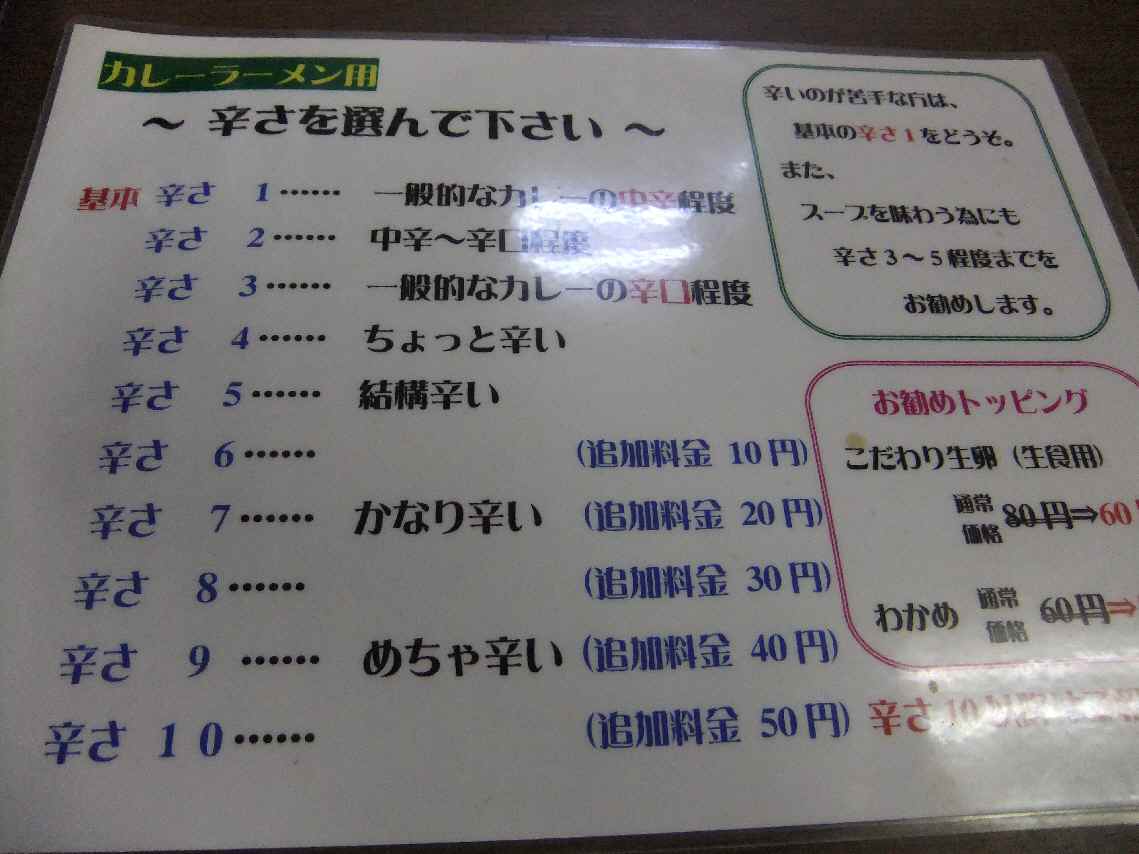 カレーラーメン用
～ 辛さを選んで下さい ～
基本 辛さ 1…… 一般的なカレーの中辛程度
辛さ 2…… 中辛～辛口程度
辛さ 3…… 一般的なカレーの辛口程度
辛さ 4…… ちょっと辛い
辛さ 5…… 結構辛い
辛さ 6…… (追加料金 10円)
辛さ 7…… かなり辛い (追加料金 20円)
辛さ 8…… (追加料金 30円)
辛さ 9 …… めちゃ辛い (追加料金 40円)
辛さ 10…… (追加料金 50円)
辛さ10
辛いのが苦手な方は、
基本の辛さ1をどうぞ。
また、
スープを味わう為にも
辛さ3～5程度までを
お勧めします。
お勧めトッピング
こだわり生卵（生食用）
通常価格 80円⇒60
わかめ 通常価格 60円⇒